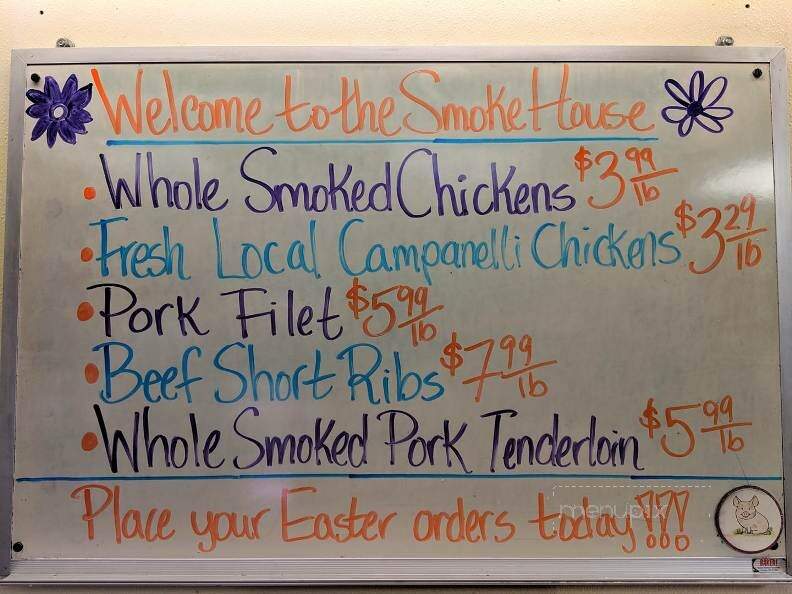 Welcome to the SmokeHouse
• Whole Smoked Chickens $3.99/lb
• Fresh Local Campanelli Chickens $3.29/lb
• Pork Filet $5.99/lb
• Beef Short Ribs $7.99/lb
• Whole Smoked Pork Tenderloin $5.99/lb
Place your Easter orders today!!!
menupix